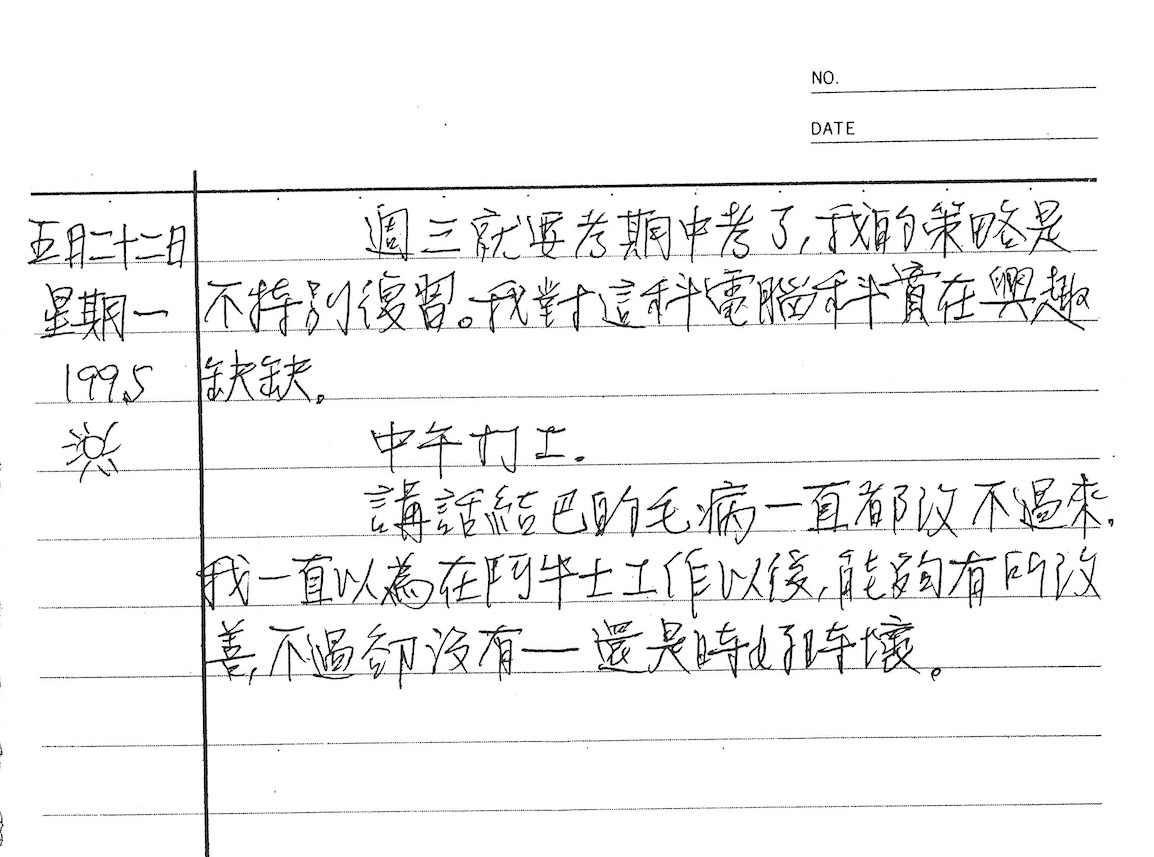 NO.
DATE
五月二十二日
星期一
1995
週三就要考期中考了,我的策略是
不特別復習。我對這科電腦科實在興趣
缺缺。
中午打工.
講話結巴的毛病一直都改不過來.
我一直以為在鬥牛士工作以後,能夠有所改
善,不過卻沒有—還是時好時壞。